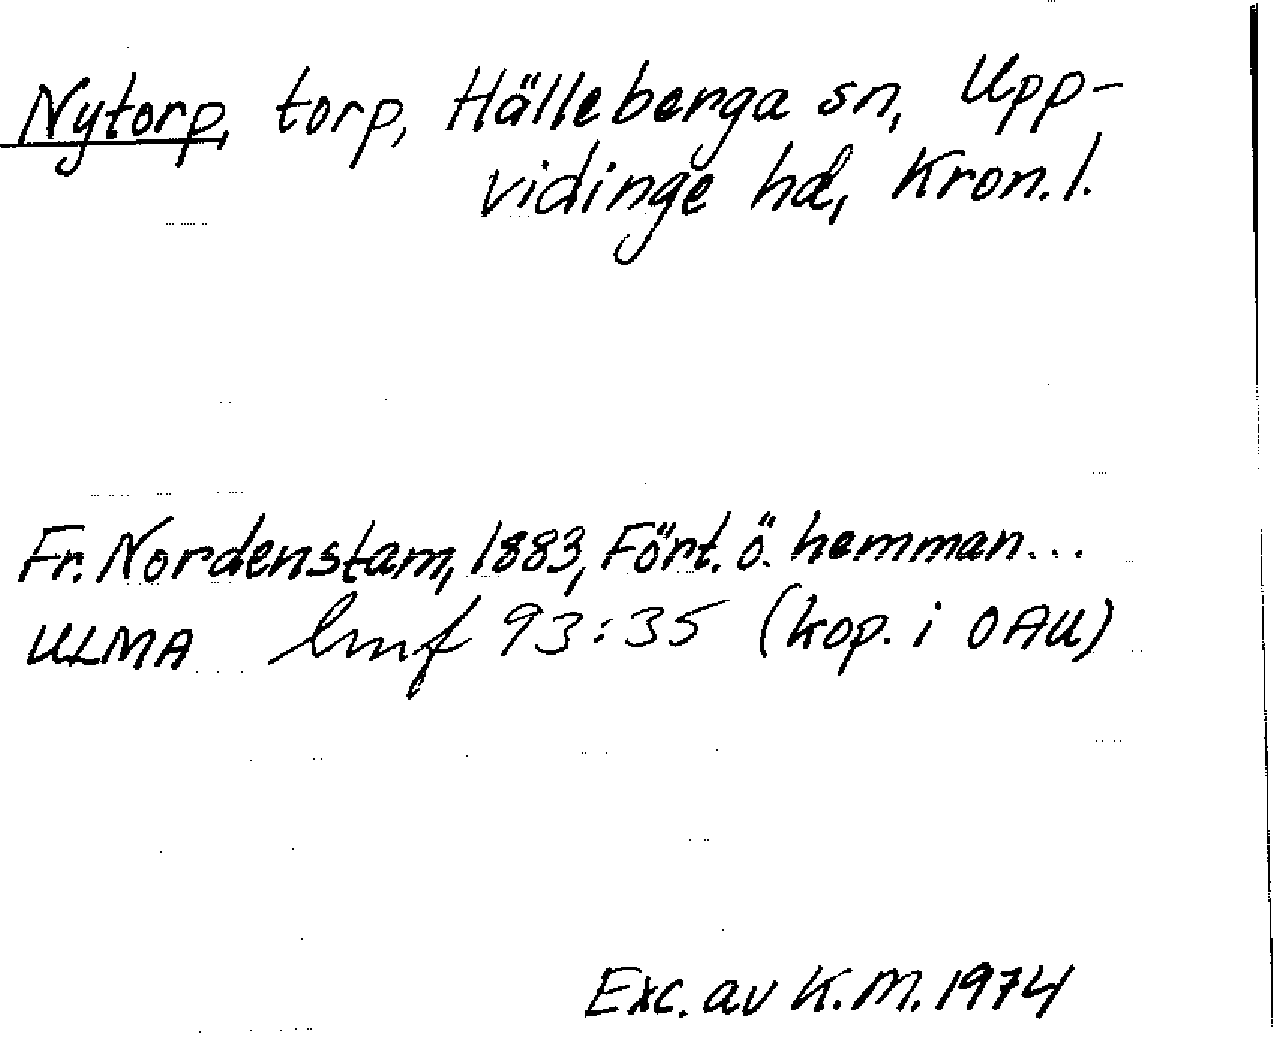 Nytorp, torp, Hälleberga sn, Upp-
vidinge hd, Kron. l.
Fr. Nordenstam, 1883, Fört. ö. hemman...
ULMA lmf 93:35 (kop. i OAU)
Exc. av K.M. 1974